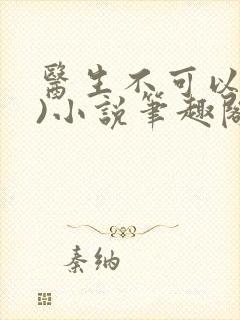 醫生不可以
)小說筆趣閣
秦納